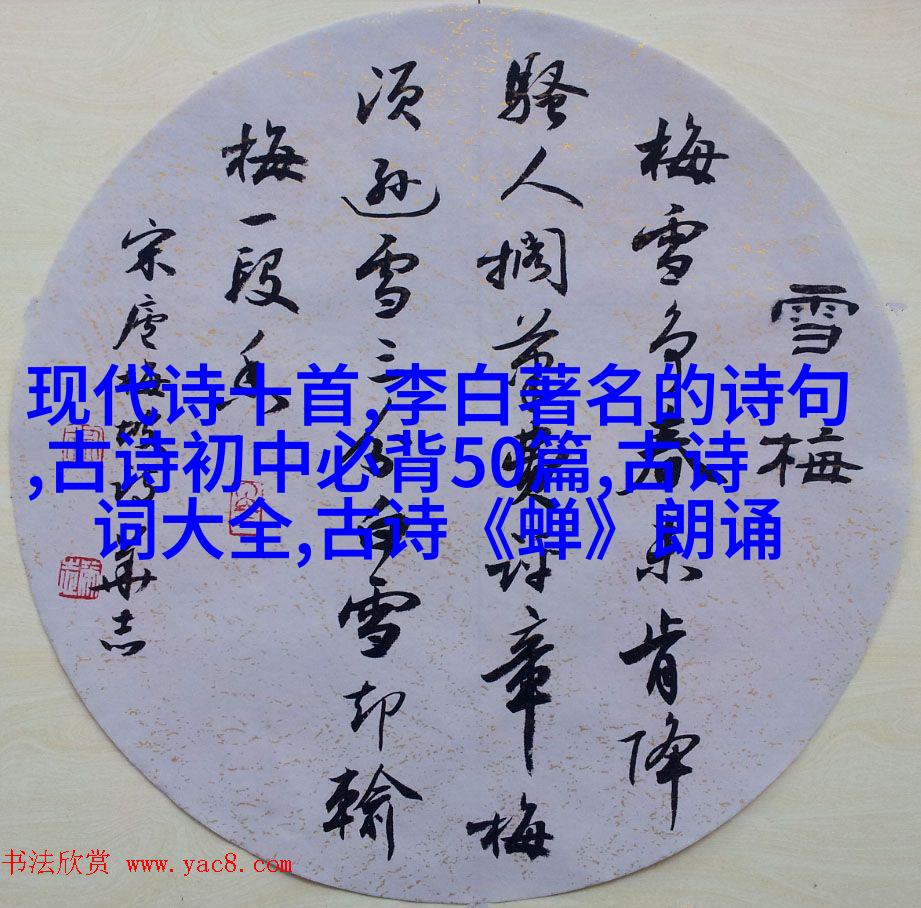 雪梅
梅雪争春未肯降
騷人擱筆費評章梅
須遜雪三分白雪却輸
梅一段香
宋盧梅坡詩華志
现代诗十首,李白著名的诗句
,古诗初中必背50篇,古诗
词大全,古诗《蝉》朗诵
书法欣赏 www.yac8.com